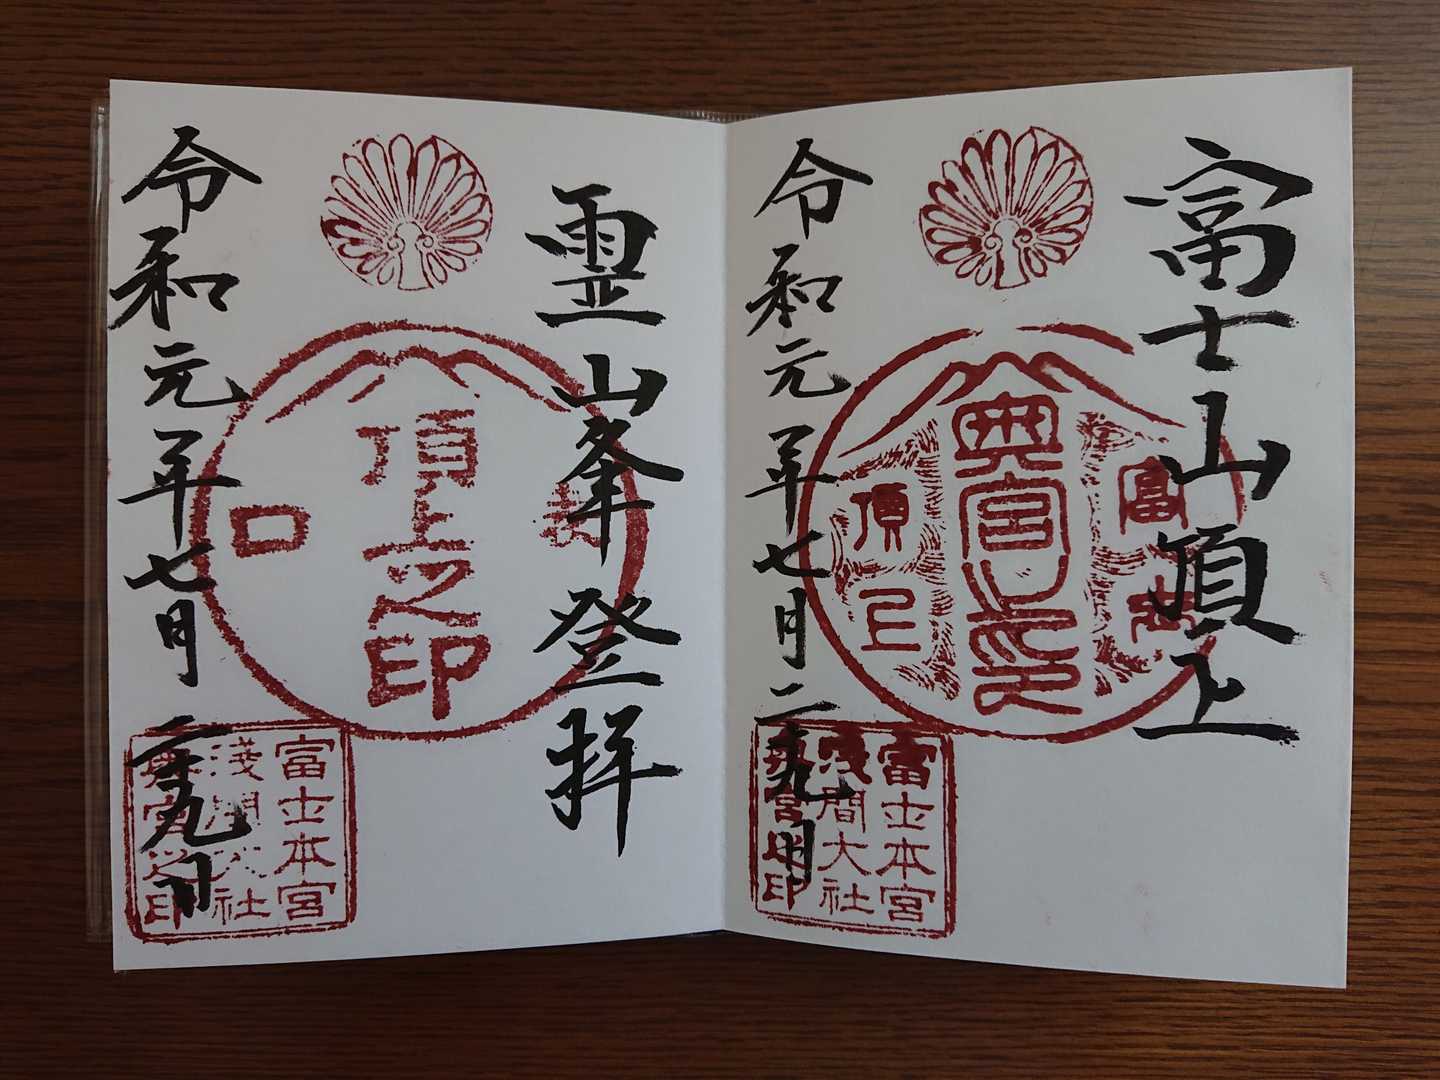 富士山頂上
富士
奥宮之印
頂上
令和元年七月二十九日
富士本宮
淺間大社
奥宮之印
霊山峯登拝
表
頂上之印
口
令和元年七月二十九日
富士本宮
淺間大社
奥宮之印